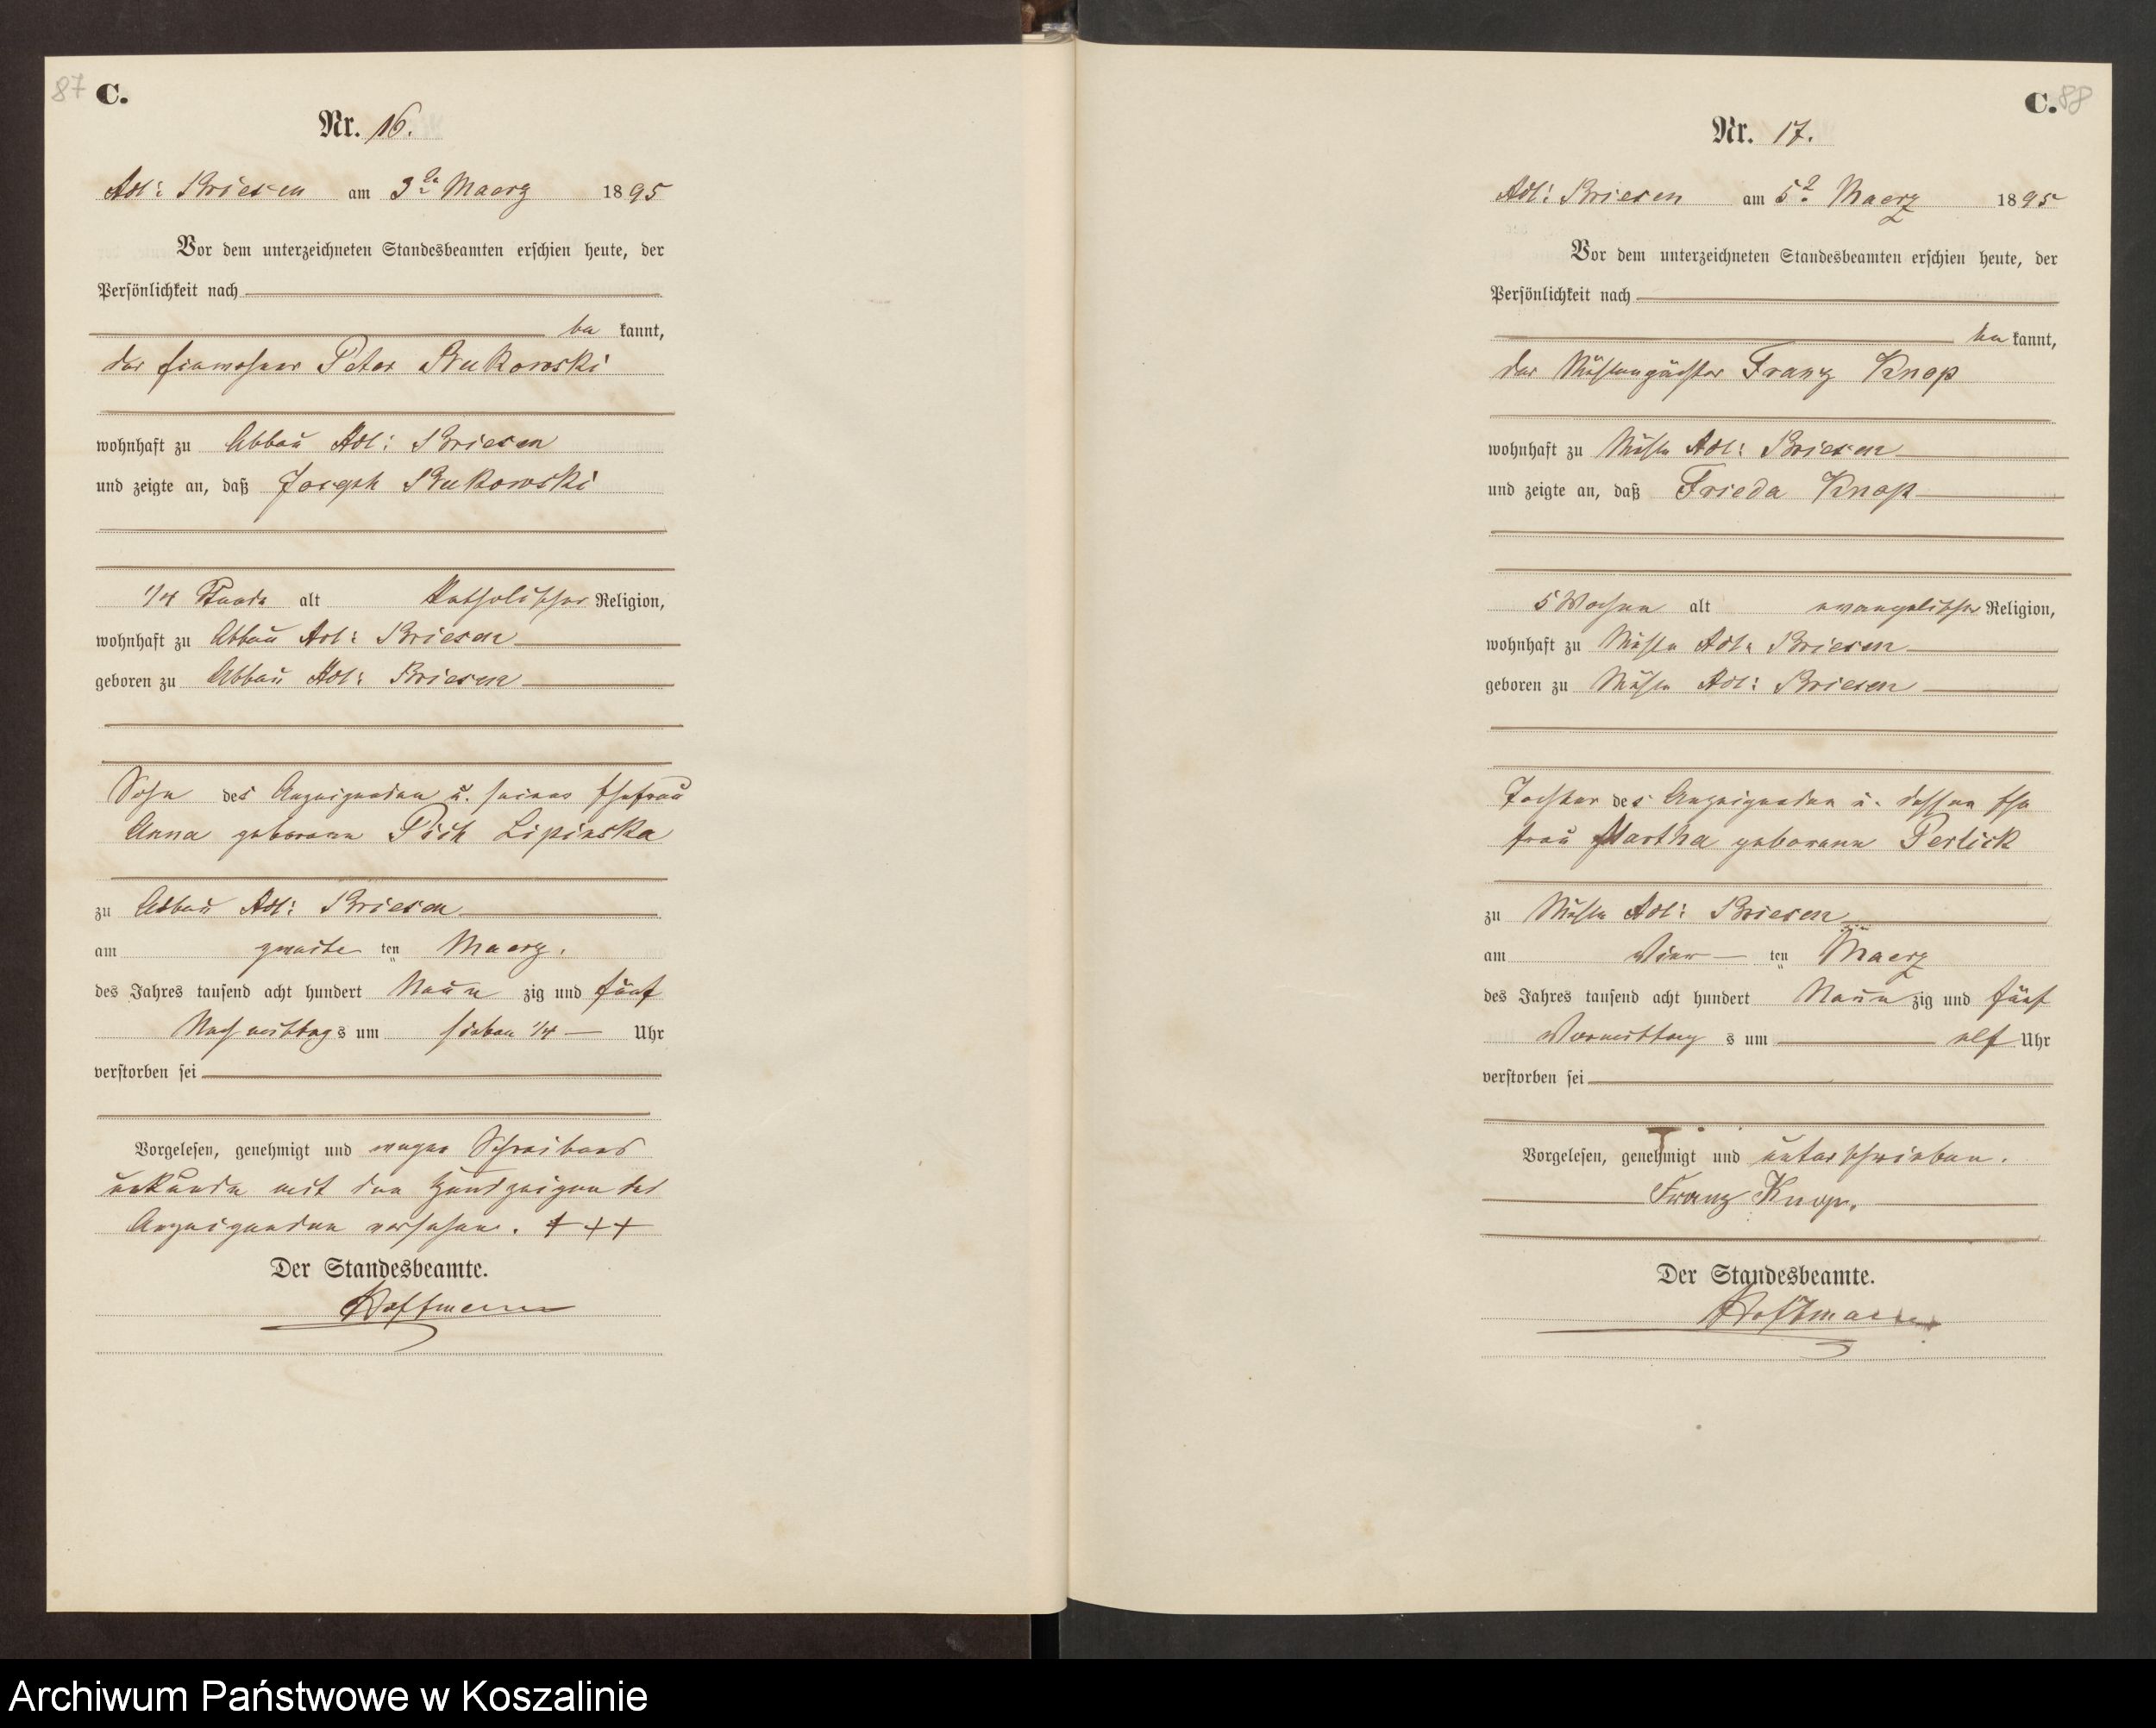 87 C.
Nr. 16.
Adl: Briesen am 3ten Maerz 1895
Vor dem unterzeichneten Standesbeamten erschien heute, der
Persönlichkeit nach
be kannt,
der Einwohner Peter Bukowski
wohnhaft zu Abbau Adl: Briesen
und zeigte an, daß Joseph Bukowski
1/4 Stunde alt katholischer Religion,
wohnhaft zu Abbau Adl: Briesen
geboren zu Abbau Adl: Briesen
Sohn des Anzeigenden u. seiner Ehefrau
Anna geborene Pich Lipinska
zu Abbau Adl: Briesen
am zweite ten Maerz.
des Jahres tausend acht hundert Neun zig und fünf
Nachmittags um sieben 1/4 Uhr
verstorben sei
Vorgelesen, genehmigt und wegen Schreibens
unkunde mit den Handzeigen des
Anzeigenden versehen. +++
Der Standesbeamte.
Hoffmann
C. 88
Nr. 17.
Adl: Briesen am 5t. Maerz 1895
Vor dem unterzeichneten Standesbeamten erschien heute, der
Persönlichkeit nach
be kannt,
der Mühlenpächter Franz Knop
wohnhaft zu Mühle Adl: Briesen
und zeigte an, daß Frieda Knop
5 Wochen alt evangelischer Religion,
wohnhaft zu Mühle Adl: Briesen
geboren zu Mühle Adl: Briesen
Tochter des Anzeigenden u. dessen Ehe
frau Martha geborene Perlick
zu Mühle Adl: Briesen
am Vier ten Maerz
des Jahres tausend acht hundert Neun zig und fünf
Vormittag s um elf Uhr
verstorben sei
Vorgelesen, genehmigt und unterschrieben.
Franz Knop.
Der Standesbeamte.
Hoffmann
Archiwum Państwowe w Koszalinie